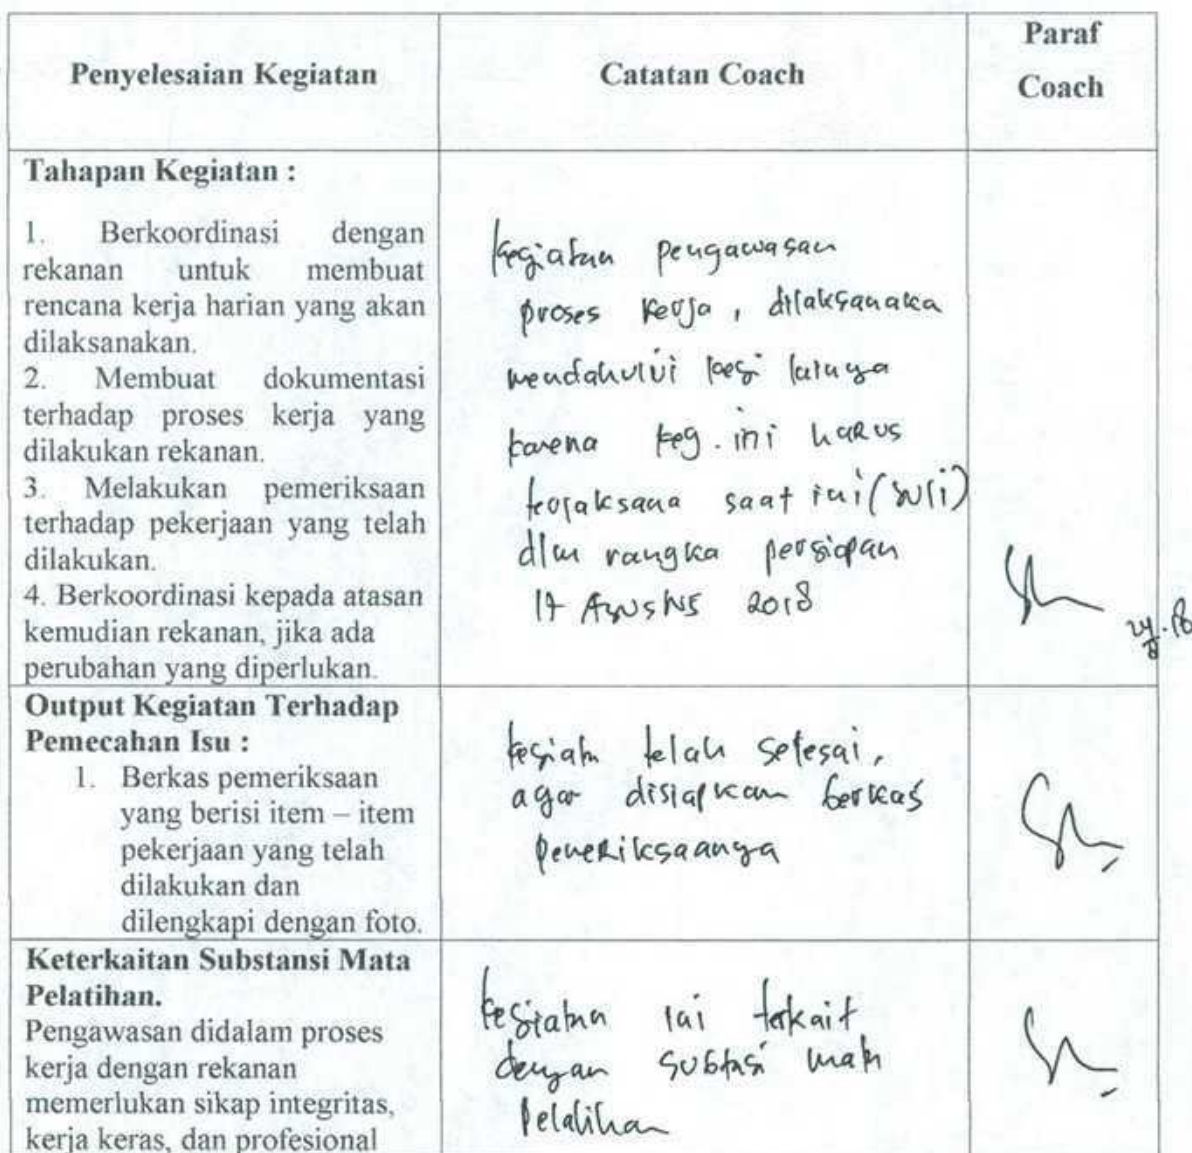 Penyelesaian Kegiatan
Catatan Coach
Paraf
Coach
Tahapan Kegiatan :
1. Berkoordinasi dengan
rekanan untuk membuat
rencana kerja harian yang akan
dilaksanakan.
2. Membuat dokumentasi
terhadap proses kerja yang
dilakukan rekanan.
3. Melakukan pemeriksaan
terhadap pekerjaan yang telah
dilakukan.
4. Berkoordinasi kepada atasan
kemudian rekanan, jika ada
perubahan yang diperlukan.
kegiatan pengawasan
proses kerja, dilaksanaka
mendahului keg lainnya
karena keg. ini harus
terlaksana saat ini
dlm rangka persiapan
17 Agustus 2018
Output Kegiatan Terhadap
Pemecahan Isu :
1. Berkas pemeriksaan
yang berisi item – item
pekerjaan yang telah
dilakukan dan
dilengkapi dengan foto.
kegiatn telah selesai,
agar disiapkan berkas
pemeriksaanya
Keterkaitan Substansi Mata
Pelatihan.
Pengawasan didalam proses
kerja dengan rekanan
memerlukan sikap integritas,
kerja keras, dan profesional
kegiatan ini terkait
dengan subtasi mata
Pelatihan